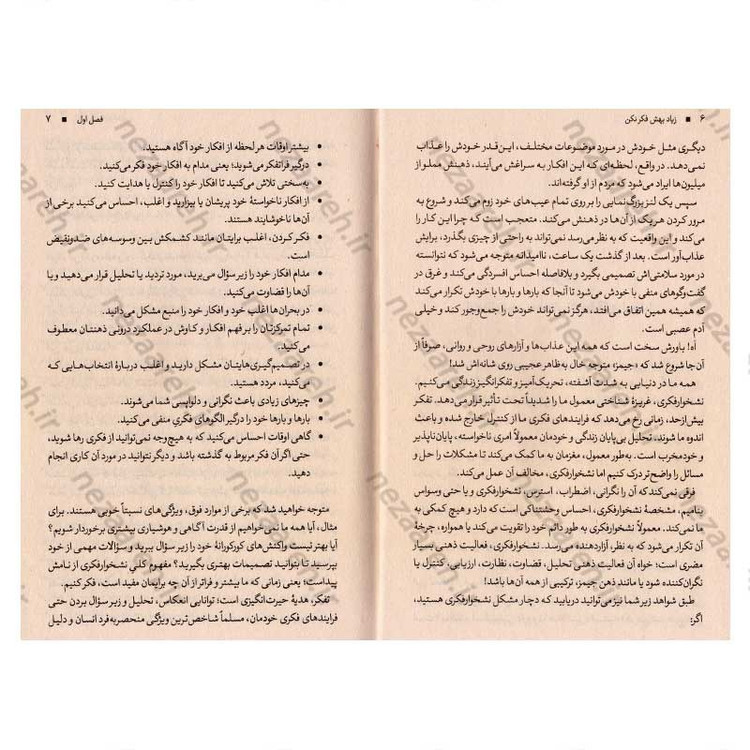 ۶ ■ زیاد بهش فکر نکن
دیگری مثل خودش در مورد موضوعات مختلف، این‌قدر خودش را عذاب
نمی‌دهد. در واقع، لحظه‌ای که این افکار به سراغش می‌آیند، ذهنش مملو از
میلیون‌ها ایراد می‌شود که مردم از او گرفته‌اند.
سپس یک لنز بزرگ‌نمایی را بر روی تمام عیب‌های خود زوم می‌کند و شروع به
مرور کردن هر یک از آن‌ها در ذهنش می‌کند. متعجب است که چرا این کار را
می‌کند و این واقعیت که به نظر می‌رسد نمی‌تواند به راحتی از چیزی بگذرد، برایش
عذاب‌آور است. بعد از گذشت یک ساعت، ناامیدانه متوجه می‌شود که نتوانسته
در مورد سلامتی‌اش تصمیمی بگیرد و بلافاصله احساس افسردگی می‌کند و غرق در
گفت‌وگوهای منفی با خودش می‌شود تا آنجا که بارها و بارها با خودش تکرار می‌کند
که همیشه همین اتفاق می‌افتد، هرگز نمی‌تواند خودش را جمع‌وجور کند و خیلی
آدم عصبی است.
اَه! باورش سخت است که همه این عذاب‌ها و آزارهای روحی و روانی، صرفاً از
آن‌جا شروع شد که «جیمز» متوجه خال به ظاهر عجیبی روی شانه‌اش شد!
همه ما در دنیایی به شدت آشفته، تحریک‌آمیز و تفکرانگیز زندگی می‌کنیم.
نشخوارفکری، غریزۀ شناختی معمول ما را شدیداً تحت تأثیر قرار می‌دهد. تفکر
بیش‌ازحد، زمانی رخ می‌دهد که فرایندهای فکری ما از کنترل خارج شده و باعث
اندوه ما شوند. تحلیل بی‌پایان زندگی و خودمان معمولاً امری ناخواسته، پایان‌ناپذیر
و خودمخرب است. به‌طور معمول، مغزمان به ما کمک می‌کند تا مشکلات را حل و
مسائل را واضح‌تر درک کنیم اما نشخوارفکری، مخالف آن عمل می‌کند.
فرقی نمی‌کند که آن را نگرانی، اضطراب، استرس، نشخوارفکری و یا حتی وسواس
بنامیم، مشخصۀ نشخوارفکری، احساس وحشتناکی است که دارد و هیچ کمکی به
ما نمی‌کند. معمولاً نشخوارفکری به طور دائم خود را تقویت می‌کند یا همواره، چرخۀ
آن تکرار می‌شود که به نظر، آزاردهنده می‌رسد. نشخوارفکری، فعالیت ذهنی بسیار
مضری است؛ خواه آن فعالیت ذهنی تحلیل، قضاوت، نظارت، ارزیابی، کنترل یا
نگران‌کننده شود یا مانند ذهن جیمز، ترکیبی از همه آن‌ها باشد!
طبق شواهد زیر شما نیز می‌توانید دریابید که دچار مشکل نشخوارفکری هستید،
اگر:
فصل اول ■ ۷
• بیشتر اوقات هر لحظه از افکار خود آگاه هستید.
• درگیر فراتفکر می‌شوید؛ یعنی مدام به افکار خود فکر می‌کنید.
• به‌سختی تلاش می‌کنید تا افکار خود را کنترل یا هدایت کنید.
• از افکار ناخواستۀ خود پریشان یا بیزارید و اغلب، احساس می‌کنید برخی از
آن‌ها ناخوشایند هستند.
• فکر کردن، اغلب برایتان مانند کشمکش بین وسوسه‌های ضدونقیض
است.
• مدام افکار خود را زیر سؤال می‌برید، مورد تردید یا تحلیل قرار می‌دهید و یا
آن‌ها را قضاوت می‌کنید.
• در بحران‌ها اغلب خود و افکار خود را منبع مشکل می‌دانید.
• تمام تمرکزتان را بر فهم افکار و کاوش در عملکرد درونی ذهنتان معطوف
می‌کنید.
• در تصمیم‌گیری‌هایتان مشکل دارید و اغلب دربارۀ انتخاب‌هایی که
می‌کنید، مردد هستید.
• چیزهای زیادی باعث نگرانی و دلواپسی شما می‌شوند.
• بارها و بارها خود را درگیر الگوهای فکریِ منفی می‌کنید.
• گاهی اوقات احساس می‌کنید که به هیچ‌وجه نمی‌توانید از فکری رها شوید،
حتی اگر آن فکر مربوط به گذشته باشد و دیگر نتوانید در مورد آن کاری انجام
دهید.
متوجه خواهید شد که برخی از موارد فوق، ویژگی‌های نسبتاً خوبی هستند. برای
مثال، آیا همه ما نمی‌خواهیم از قدرت آگاهی و هوشیاری بیشتری برخوردار شویم؟
آیا بهتر نیست واکنش‌های کورکورانۀ خود را زیر سؤال ببرید و سؤالات مهمی از خود
بپرسید تا بتوانید تصمیمات بهتری بگیرید؟ مفهوم کلی نشخوارفکری از نامش
پیداست؛ یعنی زمانی که ما بیشتر و فراتر از آن چه برایمان مفید است، فکر کنیم.
تفکر، هدیۀ حیرت‌انگیزی است؛ توانایی انعکاس، تحلیل و زیر سؤال بردن حتی
فرایندهای فکری خودمان، مسلماً شاخص‌ترین ویژگی منحصربه‌فرد انسان و دلیل
nezaareh.ir